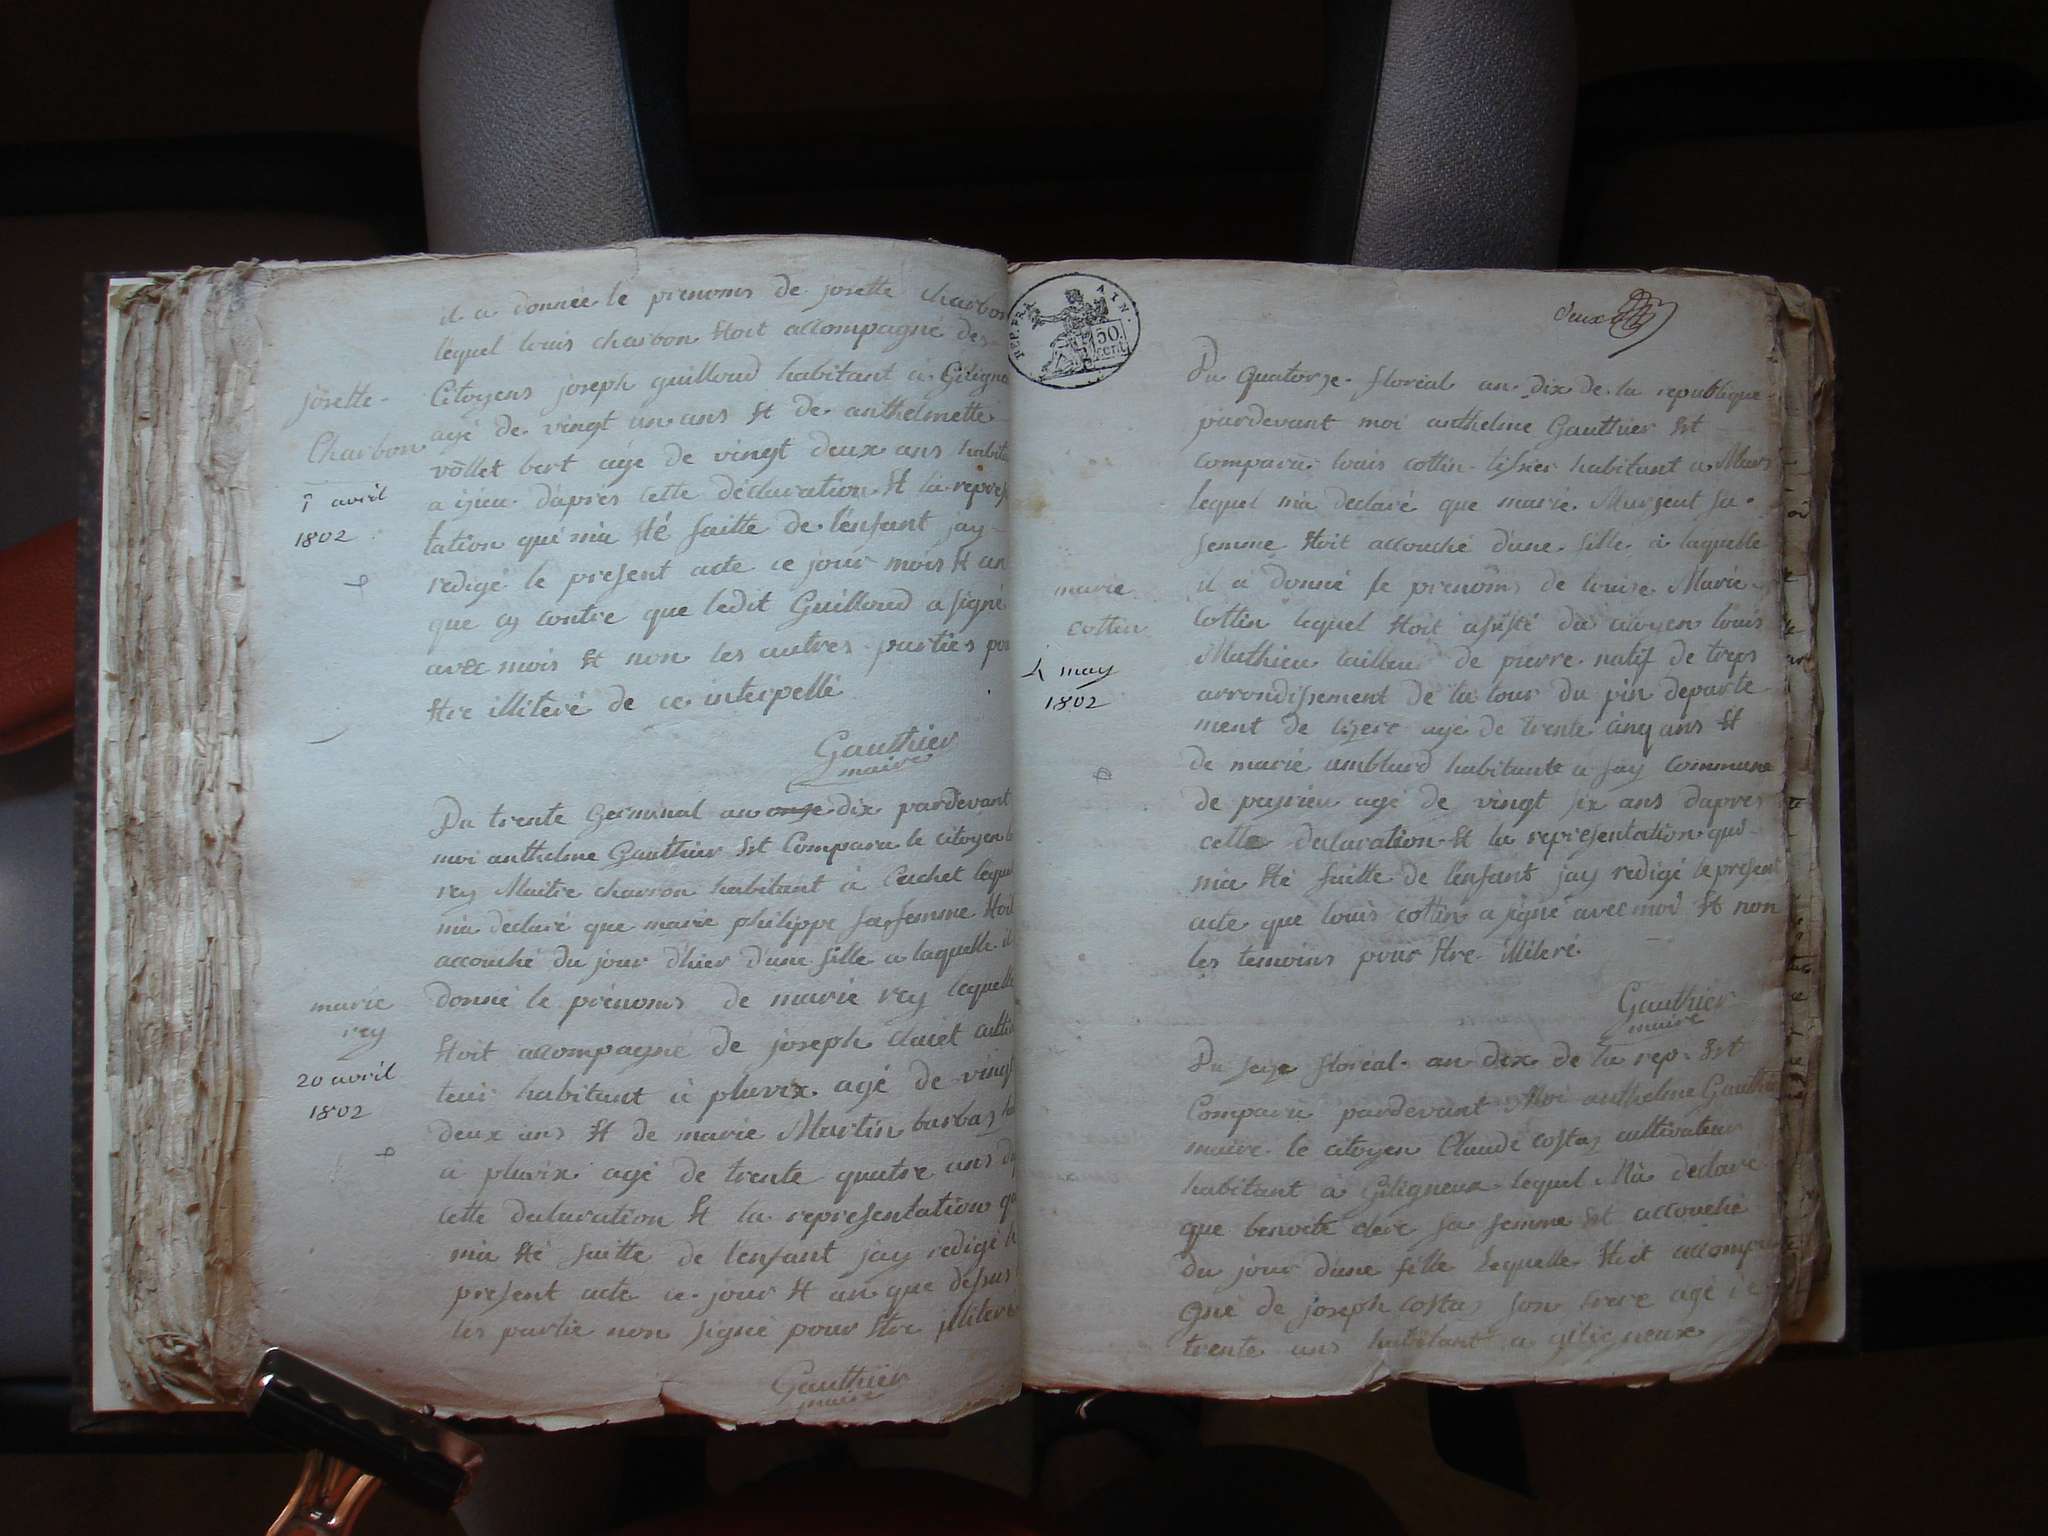 il a donnée le prenoms de josette charbon
lequel louis charbon Etoit accompagné des
Citoyens joseph guilloud habitant a Gilign
agé de vingt un ans Et de anthelmette
vollet bert agé de vingt deux ans habita
a izieu d'apres cette déclaration Et la repres
tation qui ma Eté faitte de l'enfant jay
redigé le present acte ce jour mois Et an
que cy contre que ledit Guilloud a signé
avec mois Et non les autres parties pour
Etre illiteré de ce interpellé
Gauthier
maire
josette
Charbon
1 avril
1802
Du trente Germinal an onze dix pardevant
moi anthelme Gauthier Est Comparu le citoyen
rey Maitre charron habitant à lequel
ma declaré que marie philippe sa femme Etoit
accouché du jour d'hier d'une fille a laquelle il
donné le prénoms de marie rey laquelle
Etoit accompagné de joseph claret culti
teur habitant à pluvix agé de vingt
deux ans Et de marie Martin barbaz
à pluvix agé de trente quatre ans
cette declaration Et la representation
ma Eté faitte de l'enfant jay redigé le
present acte ce jour Et an que dessus
les partie non signé pour Etre jlliteré
Gauthier
maire
marie
rey
20 avril
1802
REP. FRA. AIN.
50
cent.
deux
Du Quatorze floréal an dix de la republique
pardevant moi anthelme Gauthier Est
comparu louis cottin tisser habitant a Murs
lequel ma declaré que marie sa
femme Etoit accouché d'une fille à laquelle
il a donné le prenoms de louise Marie
Cottin lequel Etoit assisté du citoyen louis
Mathieu tailleur de pierre natif de treps
arrondissement de la tour du pin departe
ment de lizere agé de trente cinq ans Et
de marie amblard habitante a fay commune
de peyrieu agé de vingt six ans dapres
cette declaration Et la representation qui
ma Eté faitte de l'enfant jay redigé le present
acte que louis cottin a signé avec moi Et non
les temoins pour Etre illiteré
Gauthier
maire
marie
cottin
4 may
1802
Du seize floreal an dix de la rep. Est
Comparu pardevant Moi anthelme Gauthier
maire le citoyen Claude costaz cultivateur
habitant à Giligneux lequel Ma declaré
que benoite clerc sa femme Est accouché
du jour d'une fille lequelle Etoit accompa
gné de joseph costaz son frere agé de
trente ans habitant a giligneux